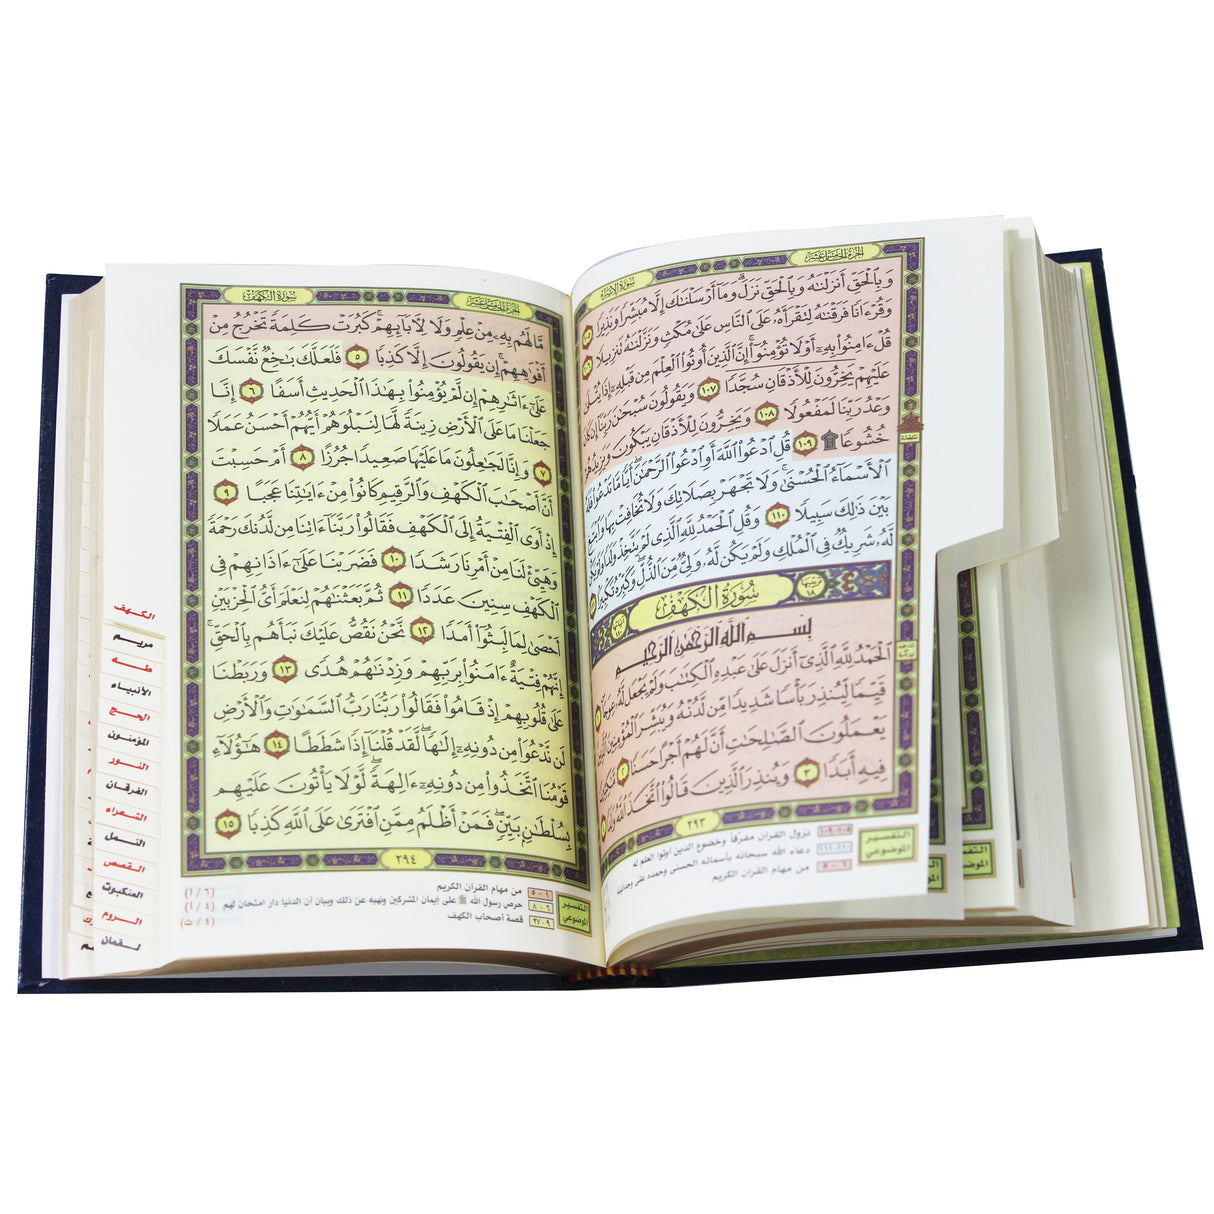 سورة الإسراء
الجزء الخامس عشر
وَبِٱلْحَقِّ أَنزَلْنَٰهُ وَبِٱلْحَقِّ نَزَلَ ۗ وَمَآ أَرْسَلْنَٰكَ إِلَّا مُبَشِّرًا وَنَذِيرًا ١٠٥
وَقُرْءَانًا فَرَقْنَٰهُ لِتَقْرَأَهُۥ عَلَى ٱلنَّاسِ عَلَىٰ مُكْثٍ وَنَزَّلْنَٰهُ تَنزِيلًا ١٠٦
قُلْ ءَامِنُوا۟ بِهِۦٓ أَوْ لَا تُؤْمِنُوٓا۟ ۚ إِنَّ ٱلَّذِينَ أُوتُوا۟ ٱلْعِلْمَ مِن قَبْلِهِۦٓ إِذَا يُتْلَىٰ
عَلَيْهِمْ يَخِرُّونَ لِلْأَذْقَانِ سُجَّدًا ١٠٧ وَيَقُولُونَ سُبْحَٰنَ رَبِّنَآ إِن كَانَ
وَعْدُ رَبِّنَا لَمَفْعُولًا ١٠٨ وَيَخِرُّونَ لِلْأَذْقَانِ يَبْكُونَ وَيَزِيدُهُمْ
خُشُوعًا ۩ ١٠٩ قُلِ ٱدْعُوا۟ ٱللَّهَ أَوِ ٱدْعُوا۟ ٱلرَّحْمَٰنَ ۖ أَيًّا مَّا تَدْعُوا۟ فَلَهُ
ٱلْأَسْمَآءُ ٱلْحُسْنَىٰ ۚ وَلَا تَجْهَرْ بِصَلَاتِكَ وَلَا تُخَافِتْ بِهَا وَٱبْتَغِ
بَيْنَ ذَٰلِكَ سَبِيلًا ١١٠ وَقُلِ ٱلْحَمْدُ لِلَّهِ ٱلَّذِى لَمْ يَتَّخِذْ وَلَدًا وَلَمْ يَكُن
لَّهُۥ شَرِيكٌ فِى ٱلْمُلْكِ وَلَمْ يَكُن لَّهُۥ وَلِىٌّ مِّنَ ٱلذُّلِّ ۖ وَكَبِّرْهُ تَكْبِيرًۢا
ترتيبها ١٨ سُورَةُ الكَهْفِ
بِسْمِ ٱللَّهِ ٱلرَّحْمَٰنِ ٱلرَّحِيمِ
ٱلْحَمْدُ لِلَّهِ ٱلَّذِىٓ أَنزَلَ عَلَىٰ عَبْدِهِ ٱلْكِتَٰبَ وَلَمْ يَجْعَل لَّهُۥ عِوَجَا ١
قَيِّمًا لِّيُنذِرَ بَأْسًا شَدِيدًا مِّن لَّدُنْهُ وَيُبَشِّرَ ٱلْمُؤْمِنِينَ ٱلَّذِينَ
يَعْمَلُونَ ٱلصَّٰلِحَٰتِ أَنَّ لَهُمْ أَجْرًا حَسَنًا ٢ مَّٰكِثِينَ
فِيهِ أَبَدًا ٣ وَيُنذِرَ ٱلَّذِينَ قَالُوا۟ ٱتَّخَذَ ٱللَّهُ وَلَدًا
٢٩٣
التفسير الموضوعي
١٠٥-١٠٩ نزول القرآن مفرّقاً وخضوع الذين أوتوا العلم له
١١٠-١١١ دعاء الله سبحانه بأسمائه الحسنى وحمده على وحدانيته
١-٥ من مهام القرآن الكريم
سورة الكهف
الجزء الخامس عشر
مَّا لَهُم بِهِۦ مِنْ عِلْمٍ وَلَا لِـَٔابَآئِهِمْ ۚ كَبُرَتْ كَلِمَةً تَخْرُجُ مِنْ
أَفْوَٰهِهِمْ ۚ إِن يَقُولُونَ إِلَّا كَذِبًا ٥ فَلَعَلَّكَ بَٰخِعٌ نَّفْسَكَ
عَلَىٰٓ ءَاثَٰرِهِمْ إِن لَّمْ يُؤْمِنُوا۟ بِهَٰذَا ٱلْحَدِيثِ أَسَفًا ٦ إِنَّا
جَعَلْنَا مَا عَلَى ٱلْأَرْضِ زِينَةً لَّهَا لِنَبْلُوَهُمْ أَيُّهُمْ أَحْسَنُ عَمَلًا
٧ وَإِنَّا لَجَٰعِلُونَ مَا عَلَيْهَا صَعِيدًا جُرُزًا ٨ أَمْ حَسِبْتَ
أَنَّ أَصْحَٰبَ ٱلْكَهْفِ وَٱلرَّقِيمِ كَانُوا۟ مِنْ ءَايَٰتِنَا عَجَبًا ٩
إِذْ أَوَى ٱلْفِتْيَةُ إِلَى ٱلْكَهْفِ فَقَالُوا۟ رَبَّنَآ ءَاتِنَا مِن لَّدُنكَ رَحْمَةً
وَهَيِّئْ لَنَا مِنْ أَمْرِنَا رَشَدًا ١٠ فَضَرَبْنَا عَلَىٰٓ ءَاذَانِهِمْ فِى
ٱلْكَهْفِ سِنِينَ عَدَدًا ١١ ثُمَّ بَعَثْنَٰهُمْ لِنَعْلَمَ أَىُّ ٱلْحِزْبَيْنِ
أَحْصَىٰ لِمَا لَبِثُوٓا۟ أَمَدًا ١٢ نَّحْنُ نَقُصُّ عَلَيْكَ نَبَأَهُم بِٱلْحَقِّ ۚ
إِنَّهُمْ فِتْيَةٌ ءَامَنُوا۟ بِرَبِّهِمْ وَزِدْنَٰهُمْ هُدًى ١٣ وَرَبَطْنَا
عَلَىٰ قُلُوبِهِمْ إِذْ قَامُوا۟ فَقَالُوا۟ رَبُّنَا رَبُّ ٱلسَّمَٰوَٰتِ وَٱلْأَرْضِ
لَن نَّدْعُوَا۟ مِن دُونِهِۦٓ إِلَٰهًا ۖ لَّقَدْ قُلْنَآ إِذًا شَطَطًا ١٤ هَٰٓؤُلَآءِ
قَوْمُنَا ٱتَّخَذُوا۟ مِن دُونِهِۦٓ ءَالِهَةً ۖ لَّوْلَا يَأْتُونَ عَلَيْهِم
بِسُلْطَٰنٍۭ بَيِّنٍ ۖ فَمَنْ أَظْلَمُ مِمَّنِ ٱفْتَرَىٰ عَلَى ٱللَّهِ كَذِبًا ١٥
٢٩٤
التفسير الموضوعي
١-٥ من مهام القرآن الكريم (٦/١)
٦-٨ حرص رسول الله ﷺ على إيمان المشركين ونهيه عن ذلك وبيان أن الدنيا دار امتحان لهم (٤/١)
٩-٢٧ قصة أصحاب الكهف (٤/ث)
الكهف
مريم
طه
الأنبياء
الحج
المؤمنون
النور
الفرقان
الشعراء
النمل
القصص
العنكبوت
الروم
لقمان